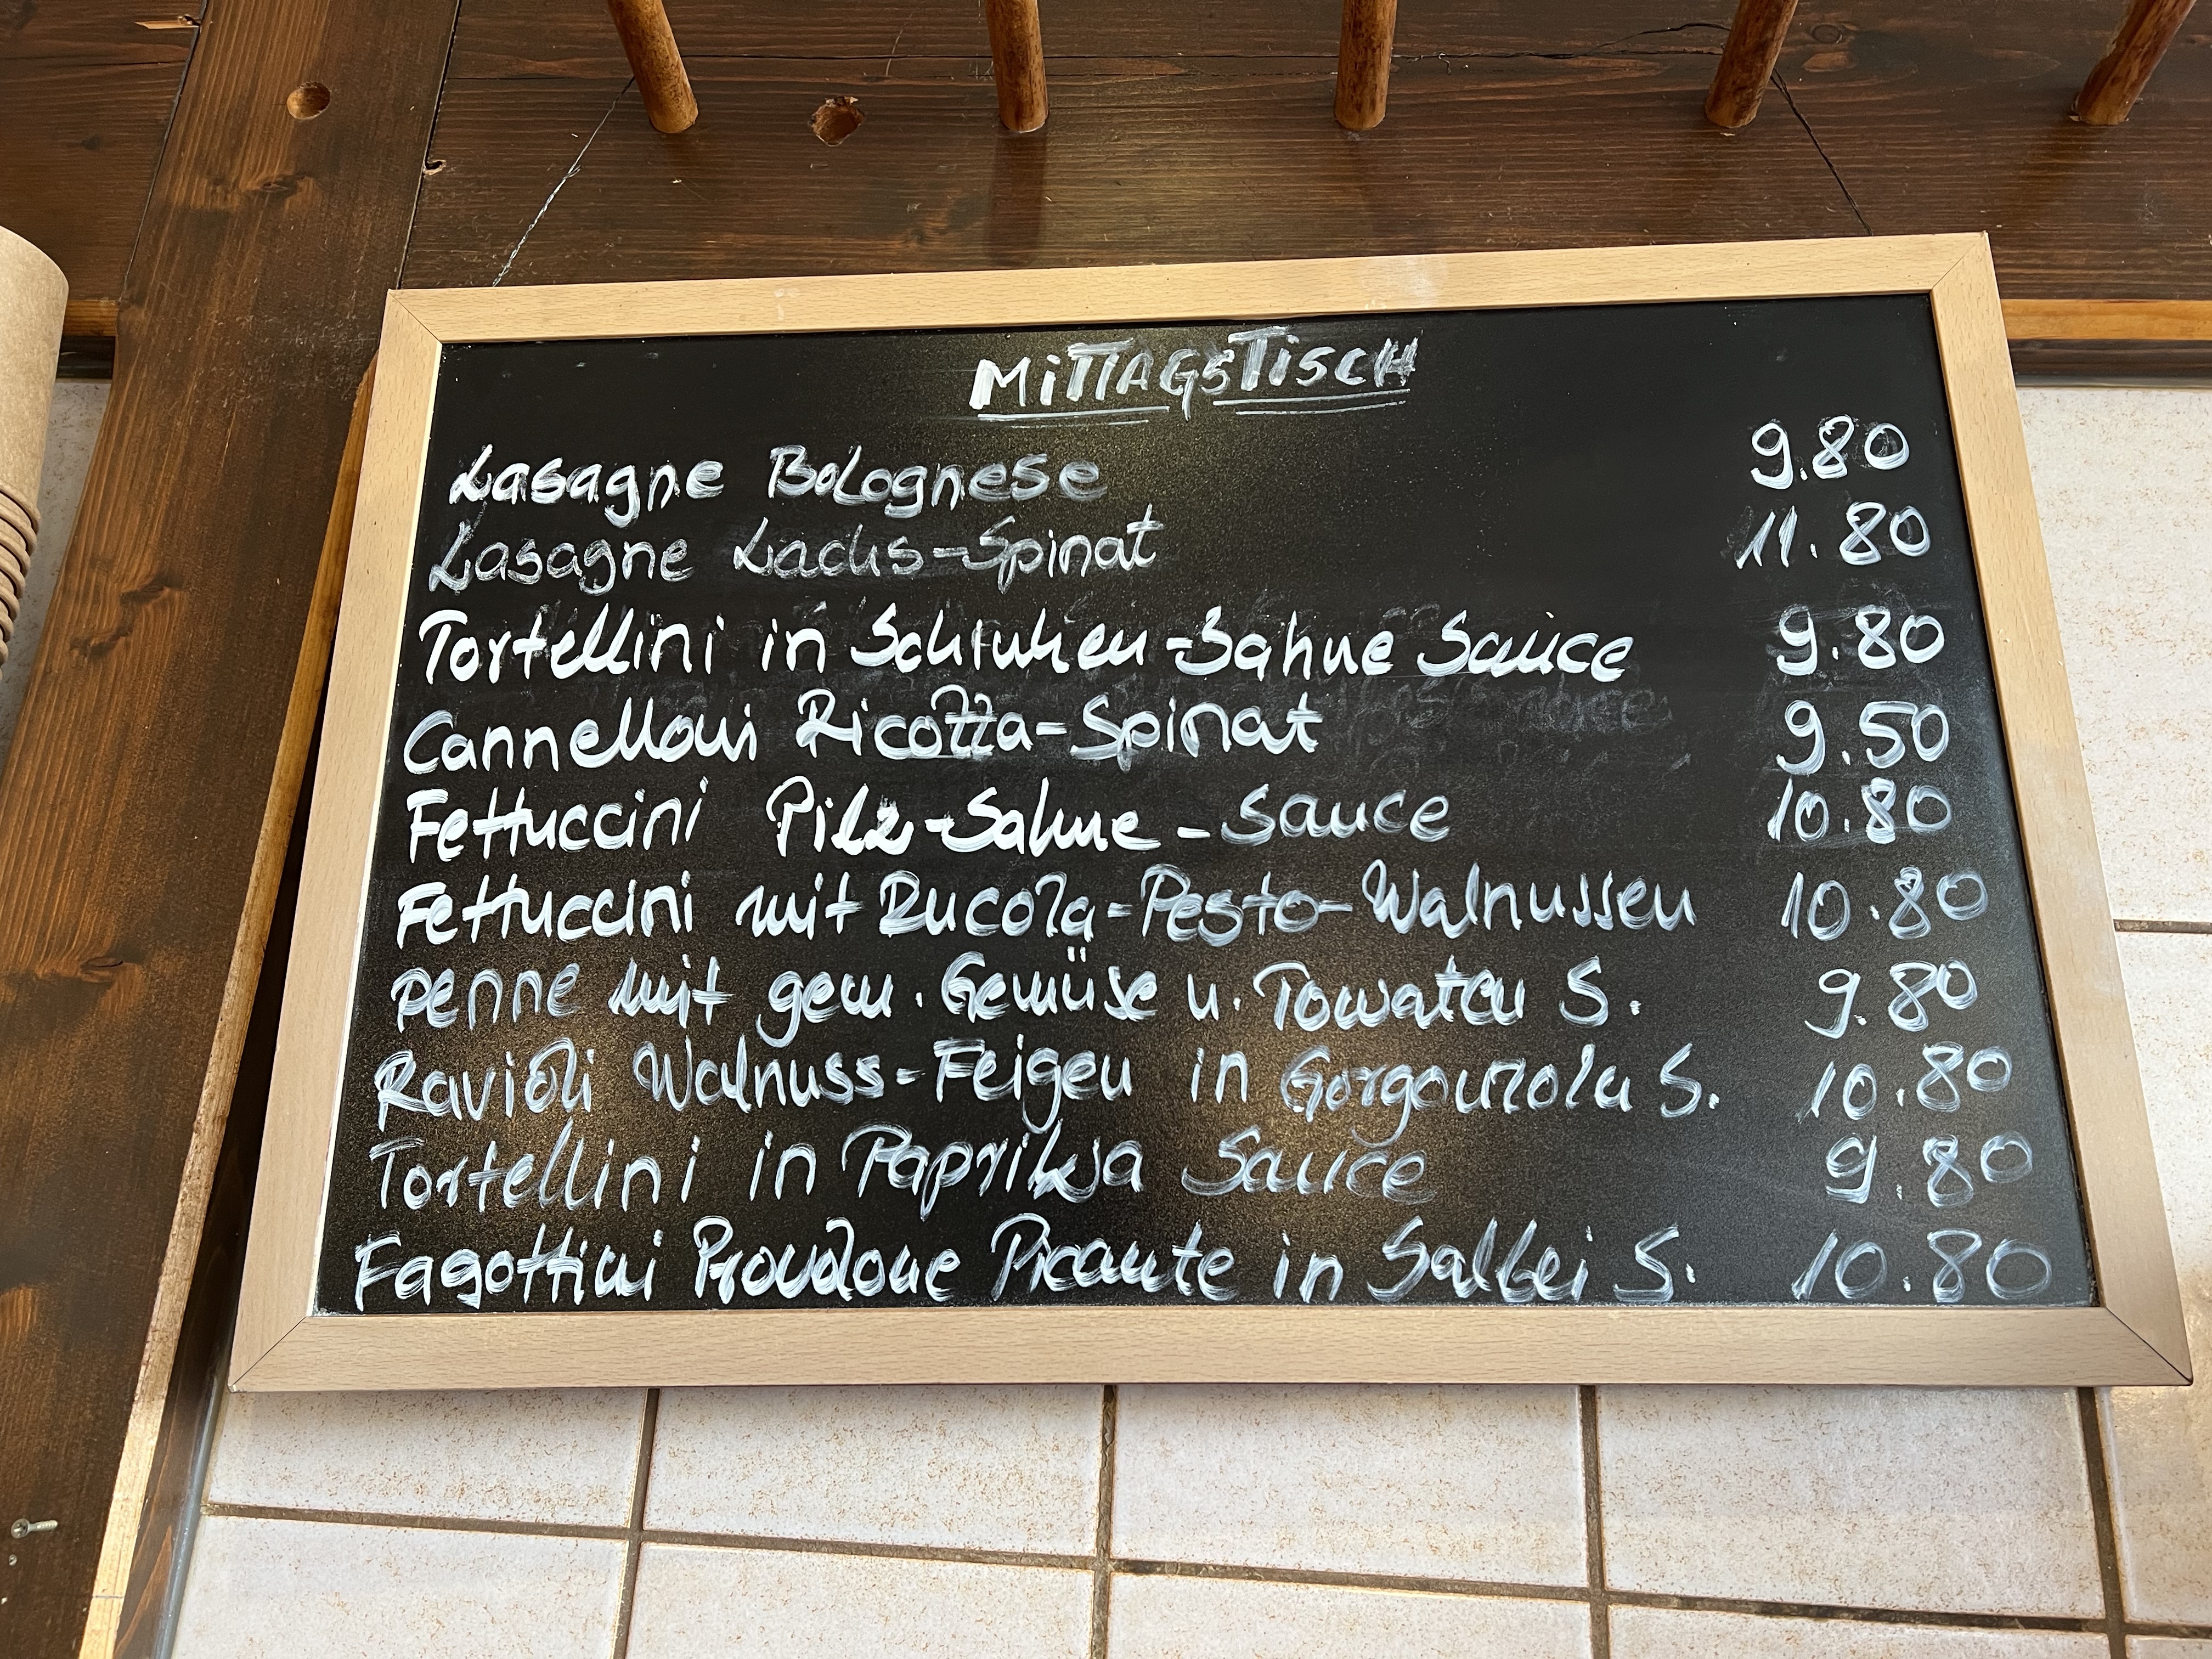 MiTTAGSTiSCH
Lasagne Bolognese 9.80
Lasagne Lachs-Spinat 11.80
Tortellini in Schinken-Sahne Sauce 9.80
Cannelloni Ricotta-Spinat 9.50
Fettuccini Pilz-Sahne-Sauce 10.80
Fettuccini mit Rucola-Pesto-Walnussen 10.80
penne mit gem. Gemüse u. Tomaten S. 9.80
Ravioli Walnuss-Feigen in Gorgonzola S. 10.80
Tortellini in Paprika Sauce 9.80
Fagottini Provolone Picante in Salbei S. 10.80